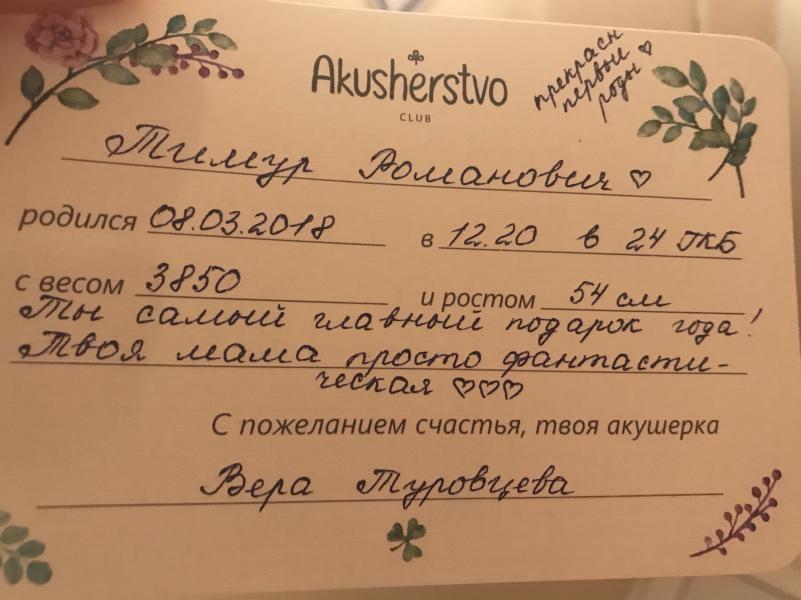 Akusherstvo
CLUB
прекрасн
первые
роды ♡
Тимур Романович ♡
родился 08.03.2018 в 12.20 в 24 ГКБ
с весом 3850 и ростом 54 см
Ты самый главный подарок года!
Твоя мама просто фантасти-
ческая ♡♡♡
С пожеланием счастья, твоя акушерка
Вера Туровцева